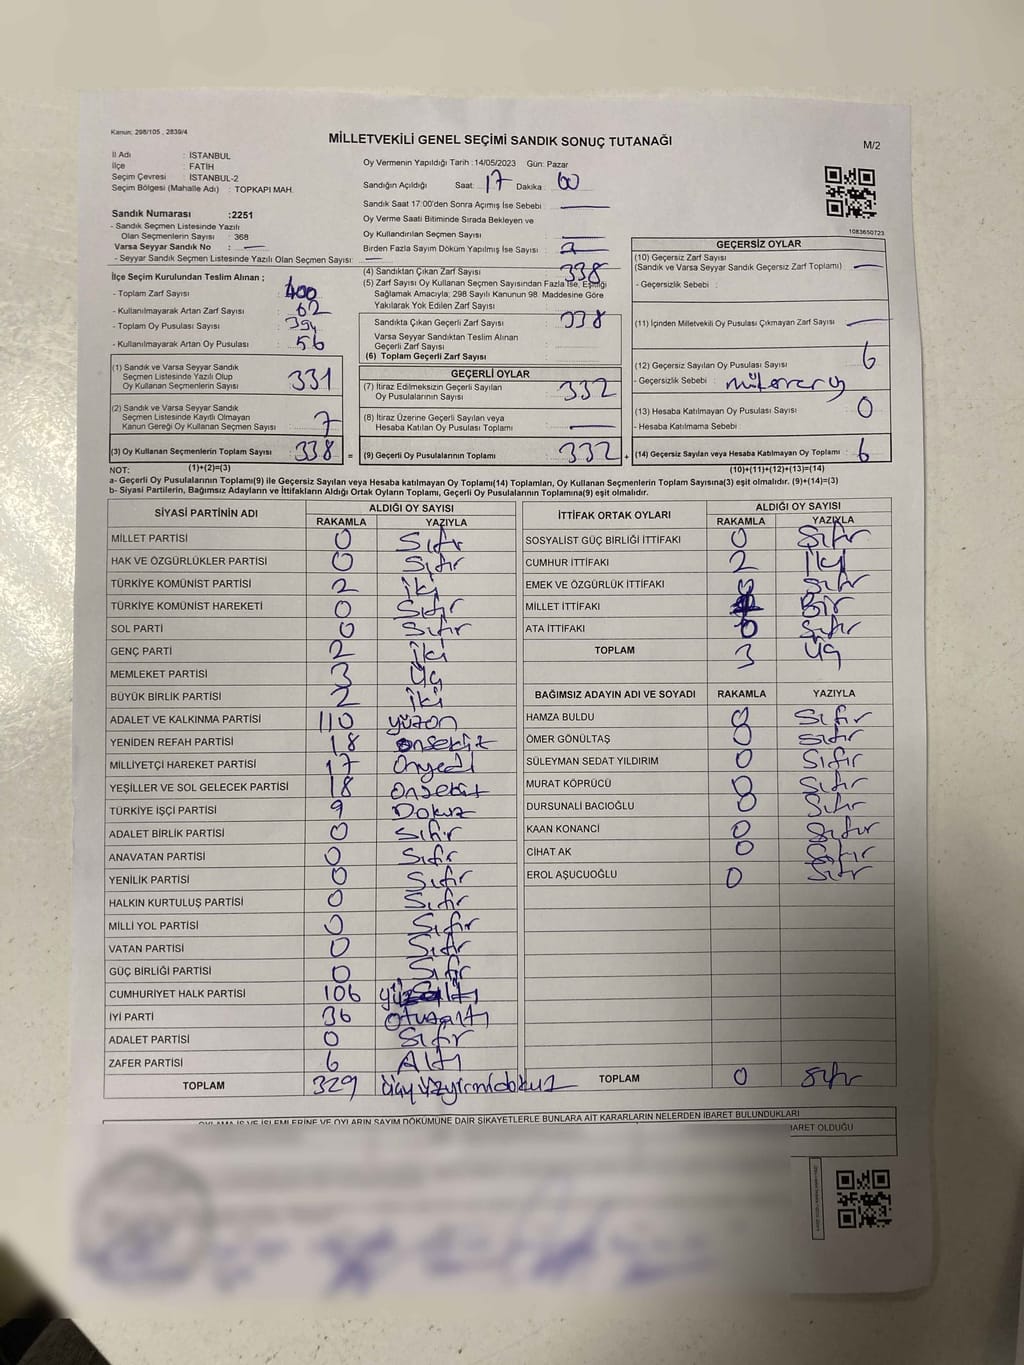 Kanun: 298/105 , 2839/4
MİLLETVEKİLİ GENEL SEÇİMİ SANDIK SONUÇ TUTANAĞI
M/2
İl Adı : İSTANBUL
İlçe : FATİH
Seçim Çevresi : İSTANBUL-2
Seçim Bölgesi (Mahalle Adı) : TOPKAPI MAH.
Sandık Numarası :2251
- Sandık Seçmen Listesinde Yazılı
Olan Seçmenlerin Sayısı : 368
Varsa Seyyar Sandık No : —
- Seyyar Sandık Seçmen Listesinde Yazılı Olan Seçmen Sayısı: —
Oy Vermenin Yapıldığı Tarih :14/05/2023 Gün: Pazar
Sandığın Açıldığı Saat: 17 Dakika : 00
Sandık Saat 17:00'den Sonra Açımış İse Sebebi : —
Oy Verme Saati Bitiminde Sırada Bekleyen ve
Oy Kullandırılan Seçmen Sayısı : —
Birden Fazla Sayım Döküm Yapılmış İse Sayısı :
1083650723
İlçe Seçim Kurulundan Teslim Alınan ;
- Toplam Zarf Sayısı : 400
- Kullanılmayarak Artan Zarf Sayısı : 62
- Toplam Oy Pusulası Sayısı : 394
- Kullanılmayarak Artan Oy Pusulası : 56
(1) Sandık ve Varsa Seyyar Sandık
Seçmen Listesinde Yazılı Olup
Oy Kullanan Seçmenlerin Sayısı : 331
(2) Sandık ve Varsa Seyyar Sandık
Seçmen Listesinde Kayıtlı Olmayan
Kanun Gereği Oy Kullanan Seçmen Sayısı : 7
(3) Oy Kullanan Seçmenlerin Toplam Sayısı : 338
(1)+(2)=(3)
(4) Sandıktan Çıkan Zarf Sayısı : 338
(5) Zarf Sayısı Oy Kullanan Seçmen Sayısından Fazla İse, Eşitliği
Sağlamak Amacıyla; 298 Sayılı Kanunun 98. Maddesine Göre
Yakılarak Yok Edilen Zarf Sayısı :
Sandıkta Çıkan Geçerli Zarf Sayısı : 338
Varsa Seyyar Sandıktan Teslim Alınan
Geçerli Zarf Sayısı :
(6) Toplam Geçerli Zarf Sayısı :
GEÇERLİ OYLAR
(7) İtiraz Edilmeksizin Geçerli Sayılan
Oy Pusulalarının Sayısı : 332
(8) İtiraz Üzerine Geçerli Sayılan veya
Hesaba Katılan Oy Pusulası Toplamı : —
= (9) Geçerli Oy Pusulalarının Toplamı : 332 +
GEÇERSİZ OYLAR
(10) Geçersiz Zarf Sayısı
(Sandık ve Varsa Seyyar Sandık Geçersiz Zarf Toplamı) : —
- Geçersizlik Sebebi :
(11) İçinden Milletvekili Oy Pusulası Çıkmayan Zarf Sayısı : —
(12) Geçersiz Sayılan Oy Pusulası Sayısı : 6
- Geçersizlik Sebebi :
(13) Hesaba Katılmayan Oy Pusulası Sayısı : 0
- Hesaba Katılmama Sebebi :
(14) Geçersiz Sayılan veya Hesaba Katılmayan Oy Toplamı : 6
(10)+(11)+(12)+(13)=(14)
NOT:
a- Geçerli Oy Pusulalarının Toplamı(9) ile Geçersiz Sayılan veya Hesaba katılmayan Oy Toplamı(14) Toplamları, Oy Kullanan Seçmenlerin Toplam Sayısına(3) eşit olmalıdır. (9)+(14)=(3)
b- Siyasi Partilerin, Bağımsız Adayların ve İttifakların Aldığı Ortak Oyların Toplamı, Geçerli Oy Pusulalarının Toplamına(9) eşit olmalıdır.
SİYASİ PARTİNİN ADI ALDIĞI OY SAYISI
RAKAMLA YAZIYLA
MİLLET PARTİSİ 0 Sıfır
HAK VE ÖZGÜRLÜKLER PARTİSİ 0 Sıfır
TÜRKİYE KOMÜNİST PARTİSİ 2 iki
TÜRKİYE KOMÜNİST HAREKETİ 0 Sıfır
SOL PARTİ 0 Sıfır
GENÇ PARTİ 2 iki
MEMLEKET PARTİSİ 3 Üç
BÜYÜK BİRLİK PARTİSİ 2 iki
ADALET VE KALKINMA PARTİSİ 110 yüzon
YENİDEN REFAH PARTİSİ 18 onsekiz
MİLLİYETÇİ HAREKET PARTİSİ 17 Onyedi
YEŞİLLER VE SOL GELECEK PARTİSİ 18 onsekiz
TÜRKİYE İŞÇİ PARTİSİ 9 Dokuz
ADALET BİRLİK PARTİSİ 0 Sıfır
ANAVATAN PARTİSİ 0 Sıfır
YENİLİK PARTİSİ 0 Sıfır
HALKIN KURTULUŞ PARTİSİ 0 Sıfır
MİLLİ YOL PARTİSİ 0 Sıfır
VATAN PARTİSİ 0 Sıfır
GÜÇ BİRLİĞİ PARTİSİ 0 Sıfır
CUMHURİYET HALK PARTİSİ 106 yüzaltı
İYİ PARTİ 36 otuzaltı
ADALET PARTİSİ 0 Sıfır
ZAFER PARTİSİ 6 Altı
TOPLAM 329 üçyüzyirmidokuz
İTTİFAK ORTAK OYLARI ALDIĞI OY SAYISI
RAKAMLA YAZIYLA
SOSYALİST GÜÇ BİRLİĞİ İTTİFAKI 0 Sıfır
CUMHUR İTTİFAKI 2 iki
EMEK VE ÖZGÜRLÜK İTTİFAKI 0 Sıfır
MİLLET İTTİFAKI Bir
ATA İTTİFAKI 0 Sıfır
TOPLAM 3 üç
BAĞIMSIZ ADAYIN ADI VE SOYADI RAKAMLA YAZIYLA
HAMZA BULDU 0 Sıfır
ÖMER GÖNÜLTAŞ 0 Sıfır
SÜLEYMAN SEDAT YILDIRIM 0 Sıfır
MURAT KÖPRÜCÜ 0 Sıfır
DURSUNALİ BACIOĞLU 0 Sıfır
KAAN KONANCİ 0 Sıfır
CİHAT AK 0 Sıfır
EROL AŞUCUOĞLU 0 Sıfır
TOPLAM 0 Sıfır
OYLAMA İŞ VE İŞLEMLERİNE VE OYLARIN SAYIM DÖKÜMÜNE DAİR ŞİKAYETLERLE BUNLARA AİT KARARLARIN NELERDEN İBARET BULUNDUKLARI
İBARET OLDUĞU